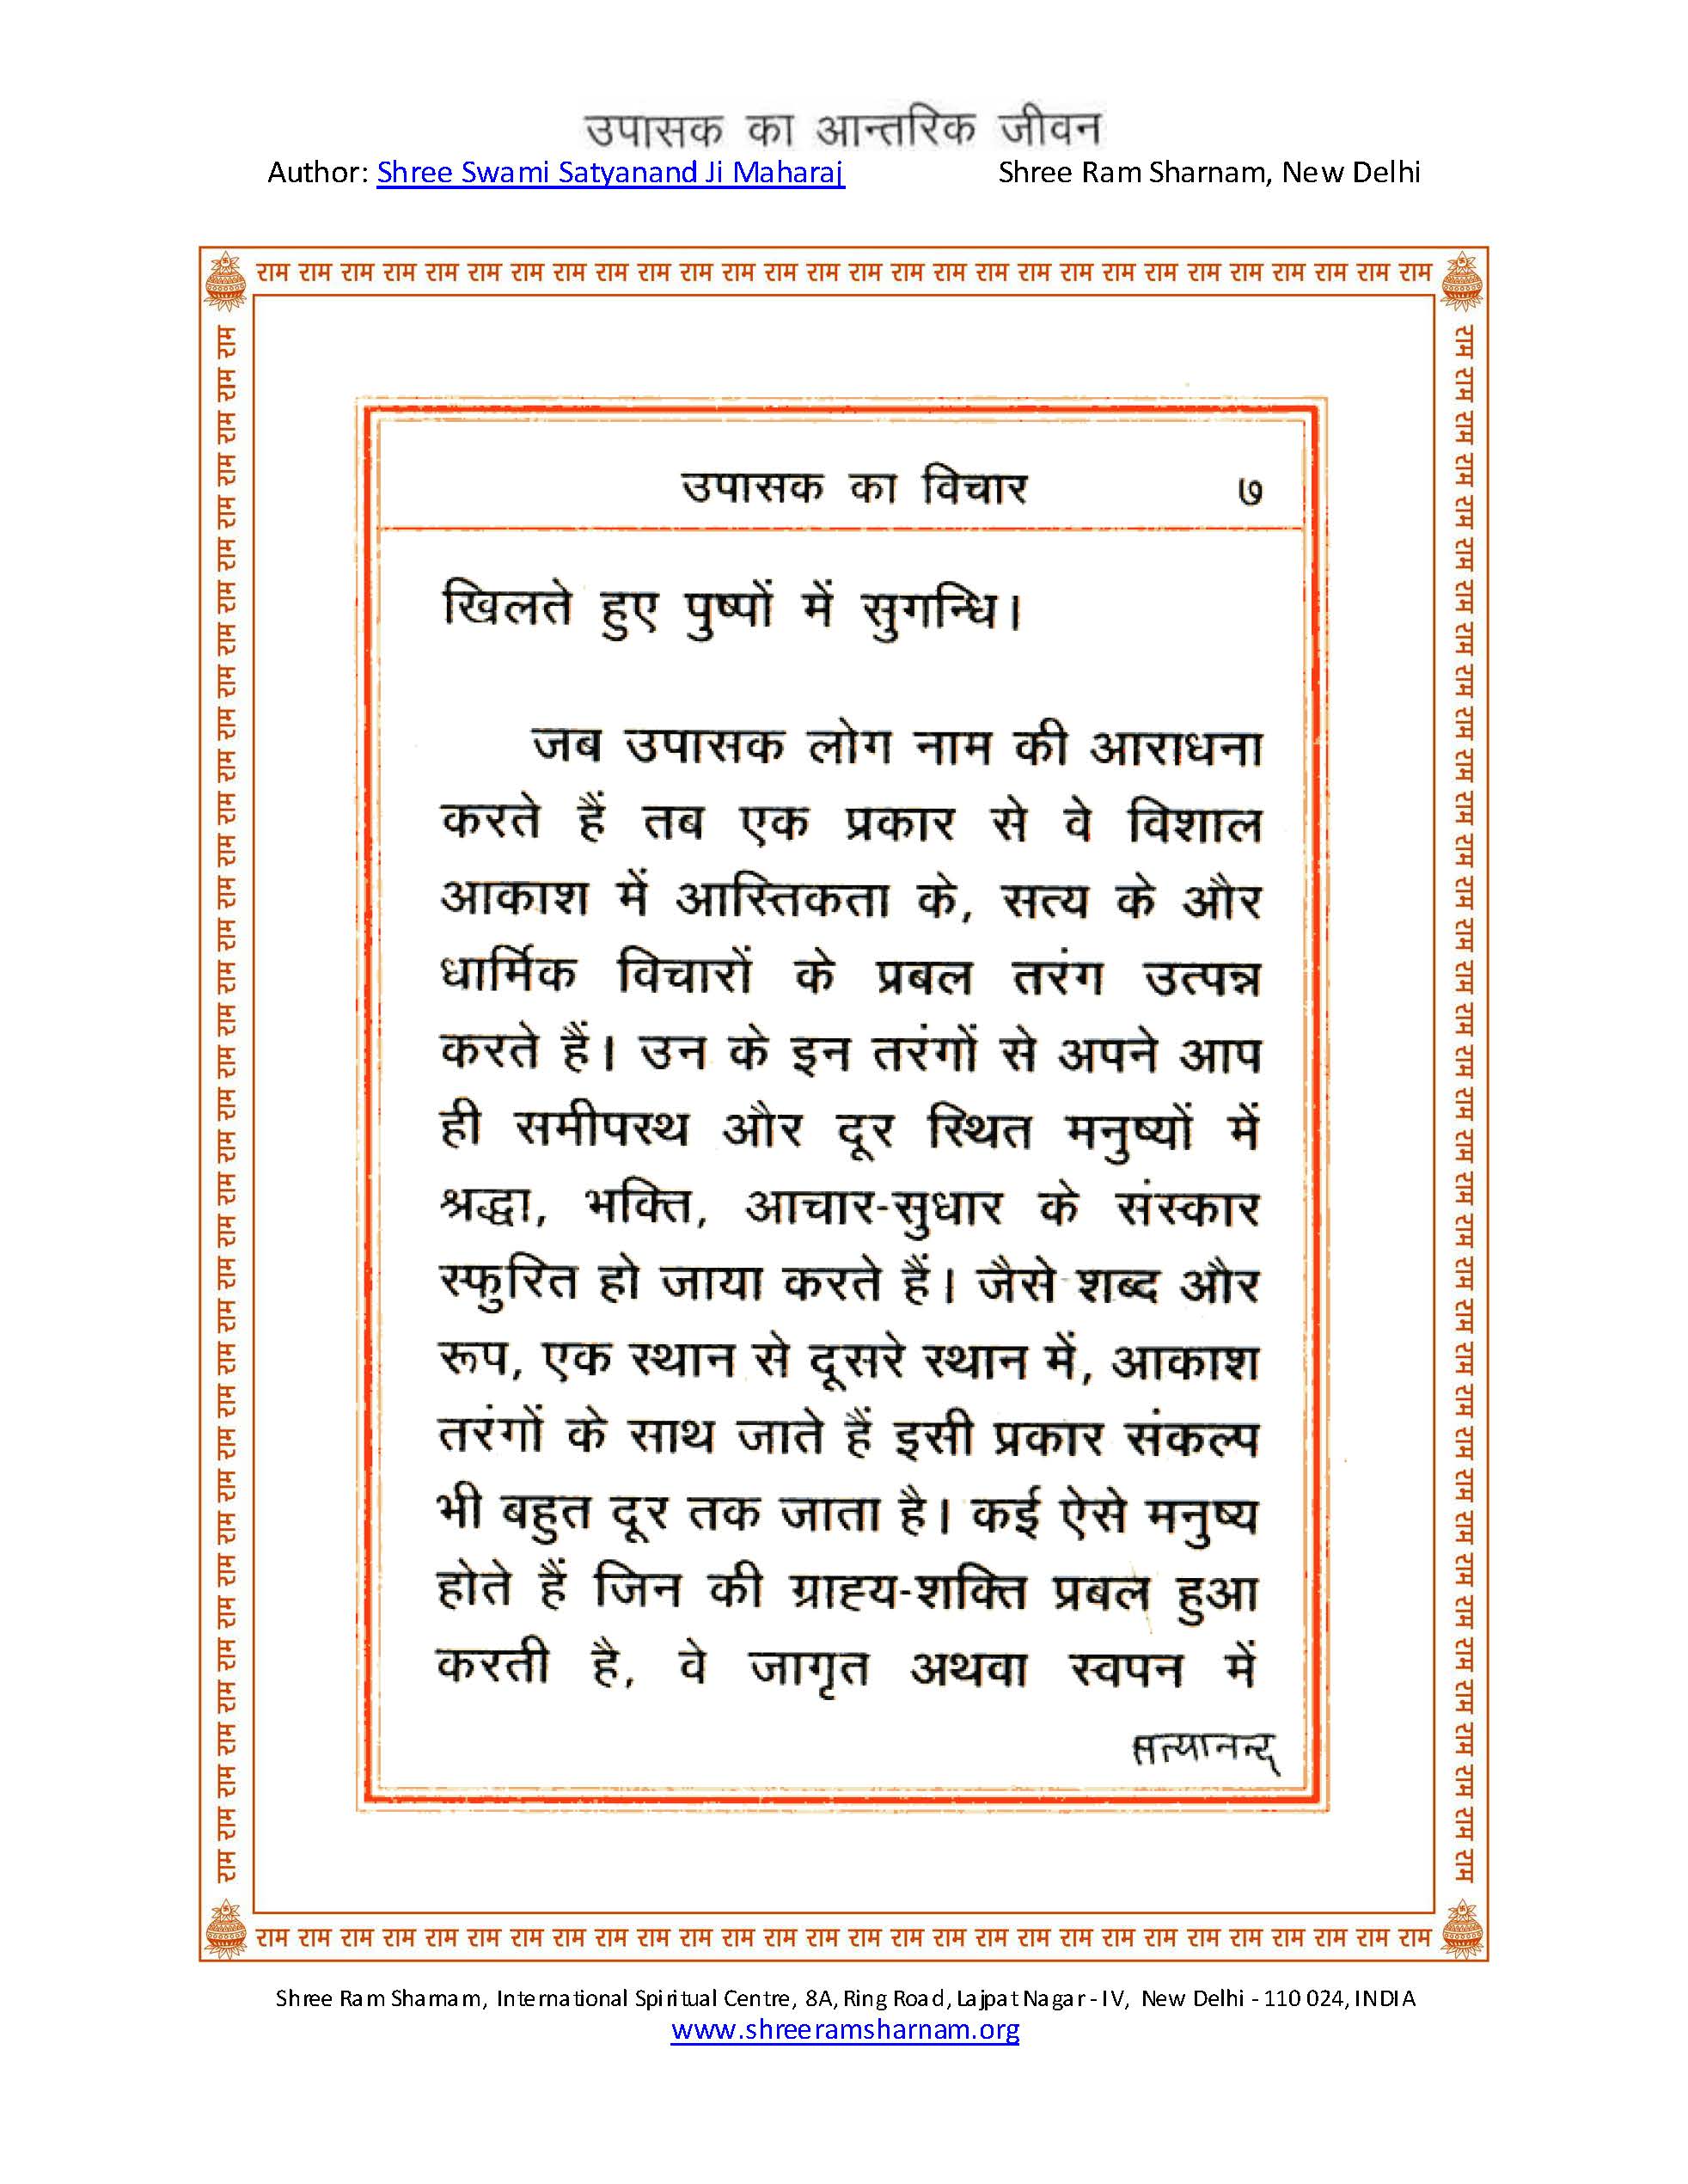 उपासक का आन्तरिक जीवन
Author: Shree Swami Satyanand Ji Maharaj Shree Ram Sharnam, New Delhi
राम राम राम राम राम राम राम राम राम राम राम राम राम राम राम राम राम राम राम राम राम राम राम राम राम राम राम राम
उपासक का विचार ७
खिलते हुए पुष्पों में सुगन्धि।
जब उपासक लोग नाम की आराधना
करते हैं तब एक प्रकार से वे विशाल
आकाश में आस्तिकता के, सत्य के और
धार्मिक विचारों के प्रबल तरंग उत्पन्न
करते हैं। उन के इन तरंगों से अपने आप
ही समीपस्थ और दूर स्थित मनुष्यों में
श्रद्धा, भक्ति, आचार-सुधार के संस्कार
स्फुरित हो जाया करते हैं। जैसे शब्द और
रूप, एक स्थान से दूसरे स्थान में, आकाश
तरंगों के साथ जाते हैं इसी प्रकार संकल्प
भी बहुत दूर तक जाता है। कई ऐसे मनुष्य
होते हैं जिन की ग्राह्य-शक्ति प्रबल हुआ
करती है, वे जागृत अथवा स्वपन में
सत्यानन्द
राम राम राम राम राम राम राम राम राम राम राम राम राम राम राम राम राम राम राम राम राम राम राम राम राम राम राम राम
Shree Ram Sharnam, International Spiritual Centre, 8A, Ring Road, Lajpat Nagar - IV, New Delhi - 110 024, INDIA
www.shreeramsharnam.org